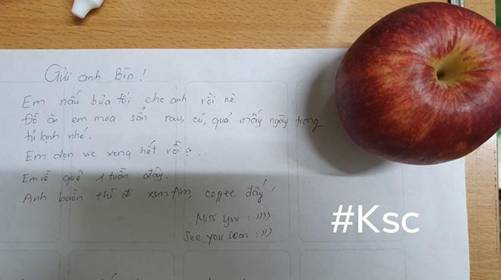 Gửi anh Bin!
Em nấu bữa tối cho anh rồi nè
Đồ ăn em mua sẵn rau, củ, quả mấy ngày trong
tủ lạnh nhé.
Em dọn wc xong hết rồi ạ..
Em về quê 1 tuần đây.
Anh buồn thì đi xem fim, coffee đấy!
Miss you :))))
See you soon :))
#Ksc